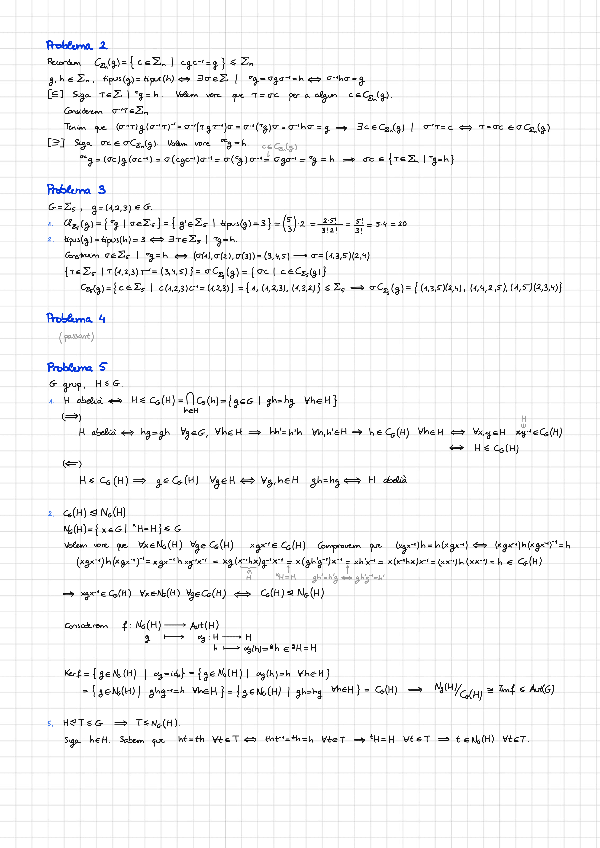 Problema 2
Recordem C_{Σn}(g) = { c ∈ Σn | cgc⁻¹ = g } ≤ Σn
g, h ∈ Σn, tipus(g) = tipus(h) ⟺ ∃σ ∈ Σn | ᵟg = σgσ⁻¹ = h ⟺ σ⁻¹hσ = g
[⊆] Sigui τ ∈ Σn | ᵗg = h. Volem veure que τ = σc per a algun c ∈ C_{Σn}(g).
Considerem σ⁻¹τ ∈ Σn
Tenim que (σ⁻¹τ)g(σ⁻¹τ)⁻¹ = σ⁻¹(τgτ⁻¹)σ = σ⁻¹(ᵗg)σ = σ⁻¹hσ = g → ∃c ∈ C_{Σn}(g) | σ⁻¹τ = c ⟺ τ = σc ∈ σC_{Σn}(g)
[⊇] Sigui σc ∈ σC_{Σn}(g). Volem veure ᵟᶜg = h.
c ∈ C_{Σn}(g)
ᵟᶜg = (σc)g(σc)⁻¹ = σ(cgc⁻¹)σ⁻¹ = σ(ᶜg)σ⁻¹ = σgσ⁻¹ = ᵟg = h ⟹ σc ∈ {τ ∈ Σn | ᵗg = h}
Problema 3
G = Σ₅, g = (1,2,3) ∈ G.
1. Cl_{Σ₅}(g) = { ᵟg | σ ∈ Σ₅ } = { g' ∈ Σ₅ | tipus(g) = 3 } = (5 3)·2 = 2·5!/3!2! = 5!/3! = 5·4 = 20
2. tipus(g) = tipus(h) = 3 ⟺ ∃τ ∈ Σ₅ | ᵗg = h.
σ ∈ Σ₅ | ᵟg = h ⟺ (σ(1), σ(2), σ(3)) = (3,4,5) → σ = (1,3,5)(2,4)
{τ ∈ Σ₅ | τ(1,2,3)τ⁻¹ = (3,4,5)} = σC_{Σ₅}(g) = {σc | c ∈ C_{Σ₅}(g)}
C_{Σ₅}(g) = {c ∈ Σ₅ | c(1,2,3)c⁻¹ = (1,2,3)} = {1, (1,2,3), (1,3,2)} ≤ Σ₅ ⟹ σC_{Σ₅}(g) = {(1,3,5)(2,4), (1,4,2,5), (1,5)(2,3,4)}
Problema 4
(passant)
Problema 5
G grup, H ≤ G.
1. H abelià ⟺ H ≤ C_G(H) = ⋂_{h∈H} C_G(h) = {g ∈ G | gh = hg ∀h ∈ H}
(⟹)
H
H abelià ⟺ hg = gh ∀g ∈ G, ∀h ∈ H ⟹ hh' = h'h ∀h,h' ∈ H → h ∈ C_G(H) ∀h ∈ H ⟺ ∀x,y ∈ H xy⁻¹ ∈ C_G(H)
⟺ H ≤ C_G(H)
(⟸)
H ≤ C_G(H) ⟹ g ∈ C_G(H) ∀g ∈ H ⟺ ∀g,h ∈ H gh = hg ⟺ H abelià
2. C_G(H) ⊴ N_G(H)
N_G(H) = { x ∈ G | ˣH = H } ≤ G
Volem veure que ∀x ∈ N_G(H) ∀g ∈ C_G(H) xgx⁻¹ ∈ C_G(H) Comprovem que (xgx⁻¹)h = h(xgx⁻¹) ⟺ (xgx⁻¹)h(xgx⁻¹)⁻¹ = h
(xgx⁻¹)h(xgx⁻¹)⁻¹ = xgx⁻¹hxg⁻¹x⁻¹ = xg(x⁻¹hx)g⁻¹x⁻¹ = x(gh'g⁻¹)x⁻¹ = xh'x⁻¹ = x(x⁻¹hx)x⁻¹ = (xx⁻¹)h(xx⁻¹) = h ∈ C_G(H)
H ˣH = H gh' = h'g ⟺ gh'g⁻¹ = h'
→ xgx⁻¹ ∈ C_G(H) ∀x ∈ N_G(H) ∀g ∈ C_G(H) ⟺ C_G(H) ⊴ N_G(H)
Considerem f: N_G(H) → Aut(H)
g ↦ αg: H → H
h ↦ αg(h) = ᵍh ∈ ᵍH = H
Kerf = { g ∈ N_G(H) | αg = id_H } = { g ∈ N_G(H) | αg(h) = h ∀h ∈ H }
= { g ∈ N_G(H) | ghg⁻¹ = h ∀h ∈ H } = { g ∈ N_G(H) | gh = hg ∀h ∈ H } = C_G(H) → N_G(H)/C_G(H) ≅ Imf ≤ Aut(G)
5. H ⊴ T ≤ G ⟹ T ≤ N_G(H).
Sigui h ∈ H. Sabem que ht = th ∀t ∈ T ⟺ tht⁻¹ = ᵗh = h ∀t ∈ T → ᵗH = H ∀t ∈ T ⟹ t ∈ N_G(H) ∀t ∈ T.